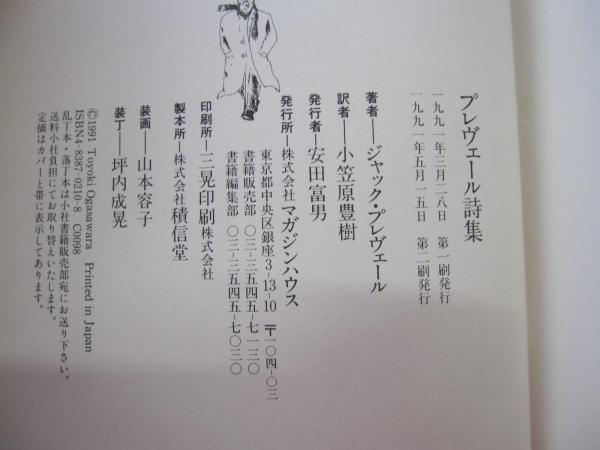 プレヴェール詩集
一九九一年三月二八日　第一刷発行
一九九一年五月一五日　第二刷発行
著者──ジャック・プレヴェール
訳者──小笠原豊樹
発行者──安田富男
発行所──株式会社マガジンハウス
東京都中央区銀座3-13-10 〒一〇四-〇三
書籍販売部　〇三-三五四五-七一三〇
書籍編集部　〇三-三五四五-七〇三〇
印刷所──三晃印刷株式会社
製本所──株式会社積信堂
装画──山本容子
装丁──坪内成晃
©1991 Toyoki Ogasawara　Printed in Japan
ISBN4-8387-0210-8　C0098
乱丁本・落丁本は小社書籍販売部宛にお送り下さい。
送料小社負担にてお取り替えいたします。
定価はカバーと帯に表示してあります。